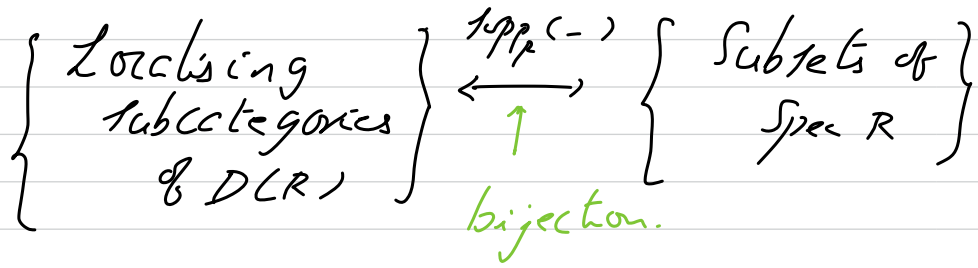 { Localising subcategories of D(R) } supp_R(-) ⟷ { Subsets of Spec R }
↑
bijection.